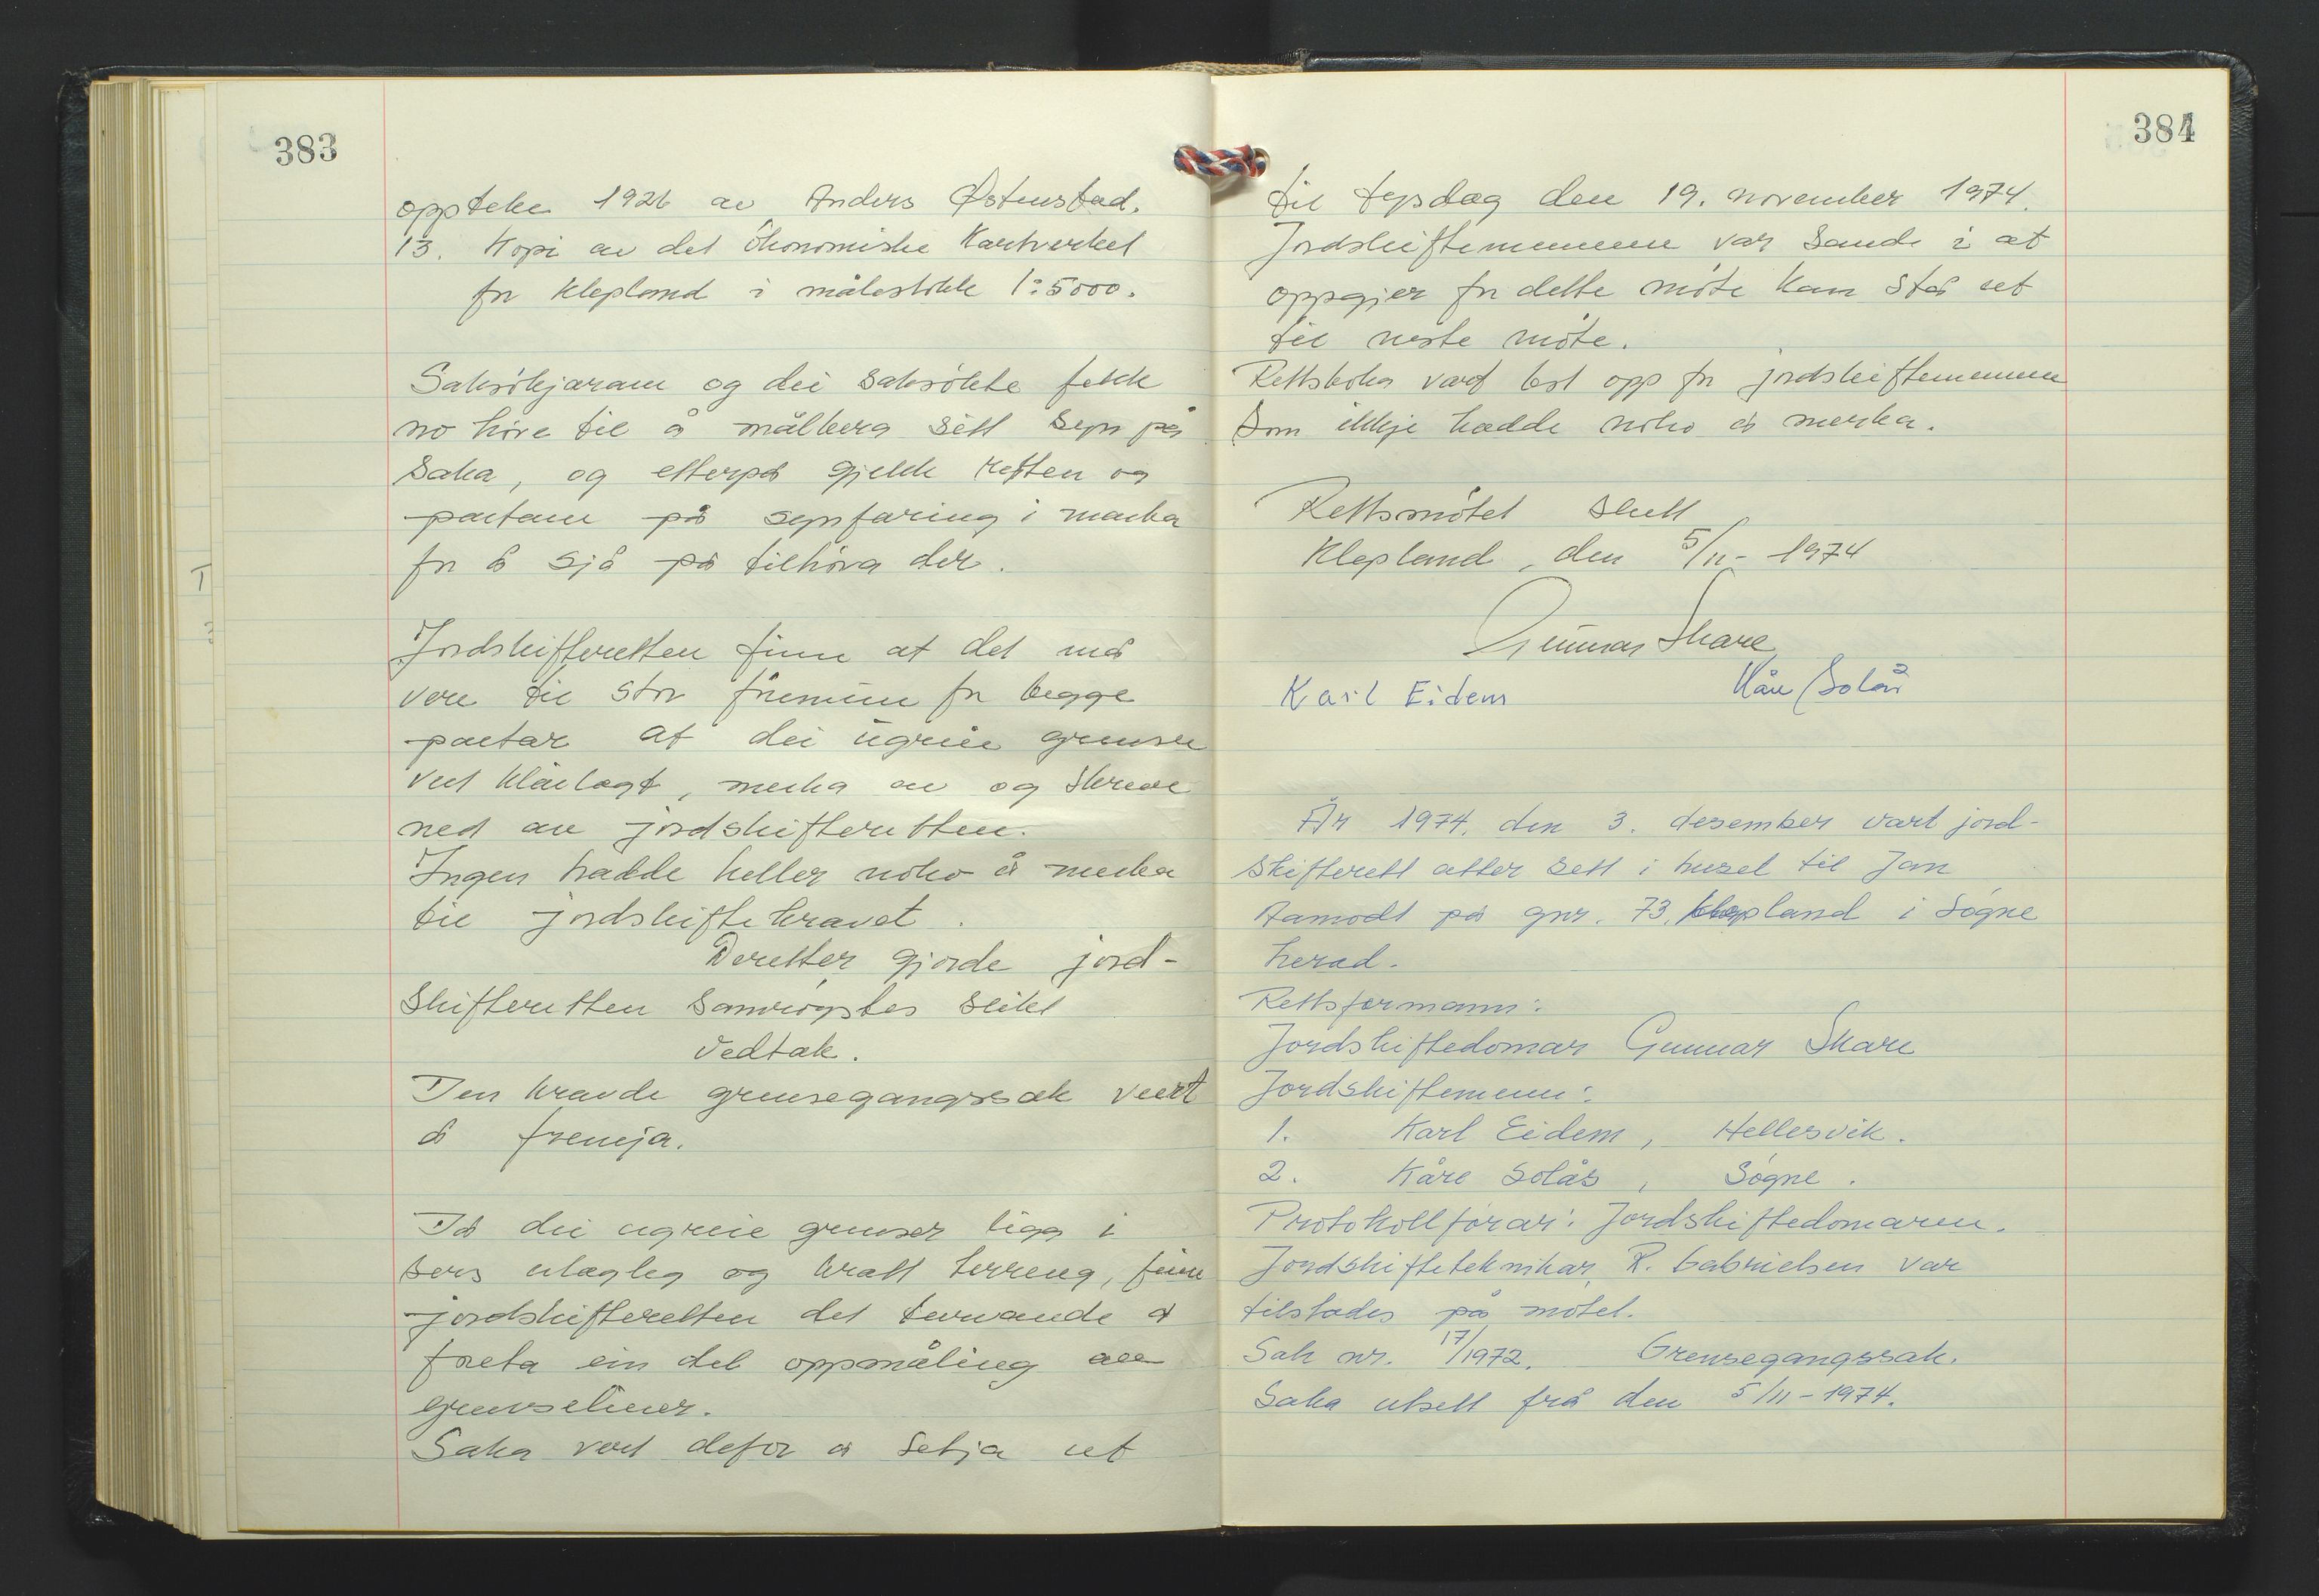 383
oppteke 1926 av Anders Østenstad.
13. Kopi av det økonomiske Kartverket
for Klepland i målestokk 1:5000.
Saksøkjarane og dei saksøkte fekk
no høve til å målbera sitt syn på
Saka, og etterpå gjekk retten og
partane på synfaring i marka
for å sjå på tilhøva der.
Jordskifteretten finn at det må
vere til stor føremun for begge
partar at dei ugreie grenser
vert klårlagt, merka av og skreve
ned av jordskifteretten.
Ingen hadde heller noko å merka
til jordskiftekravet.
Deretter gjorde jord-
skifteretten samrøystes slikt
Vedtak.
Den kravde grensegangssak vert
å fremja.
Då dei ugreie grenser ligg i
sers ulagleg og bratt terreng, finn
jordskifteretten det turvande å
foreta ein del oppmåling av
grenseliner.
Saka vert defor å setja ut
384
til tysdag den 19. november 1974.
Jordskiftemennene var samde i at
oppgjer for dette møte kan stå ut
til neste møte.
Rettsboka vart lest opp for jordskiftemennene
som ikkje hadde noko å merka.
Rettsmøtet slutt
Klepland, den 5/11- 1974
Gunnar Skare
Karl Eidem Kåre Solås
År 1974, den 3. desember vart jord-
skifterett atter sett i huset til Jan
Aamodt på gnr. 73, Klepland i Søgne
herad.
Rettsformann:
Jordskiftedomar Gunnar Skare
Jordskiftemenn:
1. Karl Eidem, Hellesvik.
2. Kåre Solås, Søgne.
Protokollførar: Jordskiftedomaren.
Jordskifteteknikar R. Gabrielsen var
tilstades på møtet.
Sak nr. 17/1972. Grensegangssak.
Saka utsett frå den 5/11-1974.